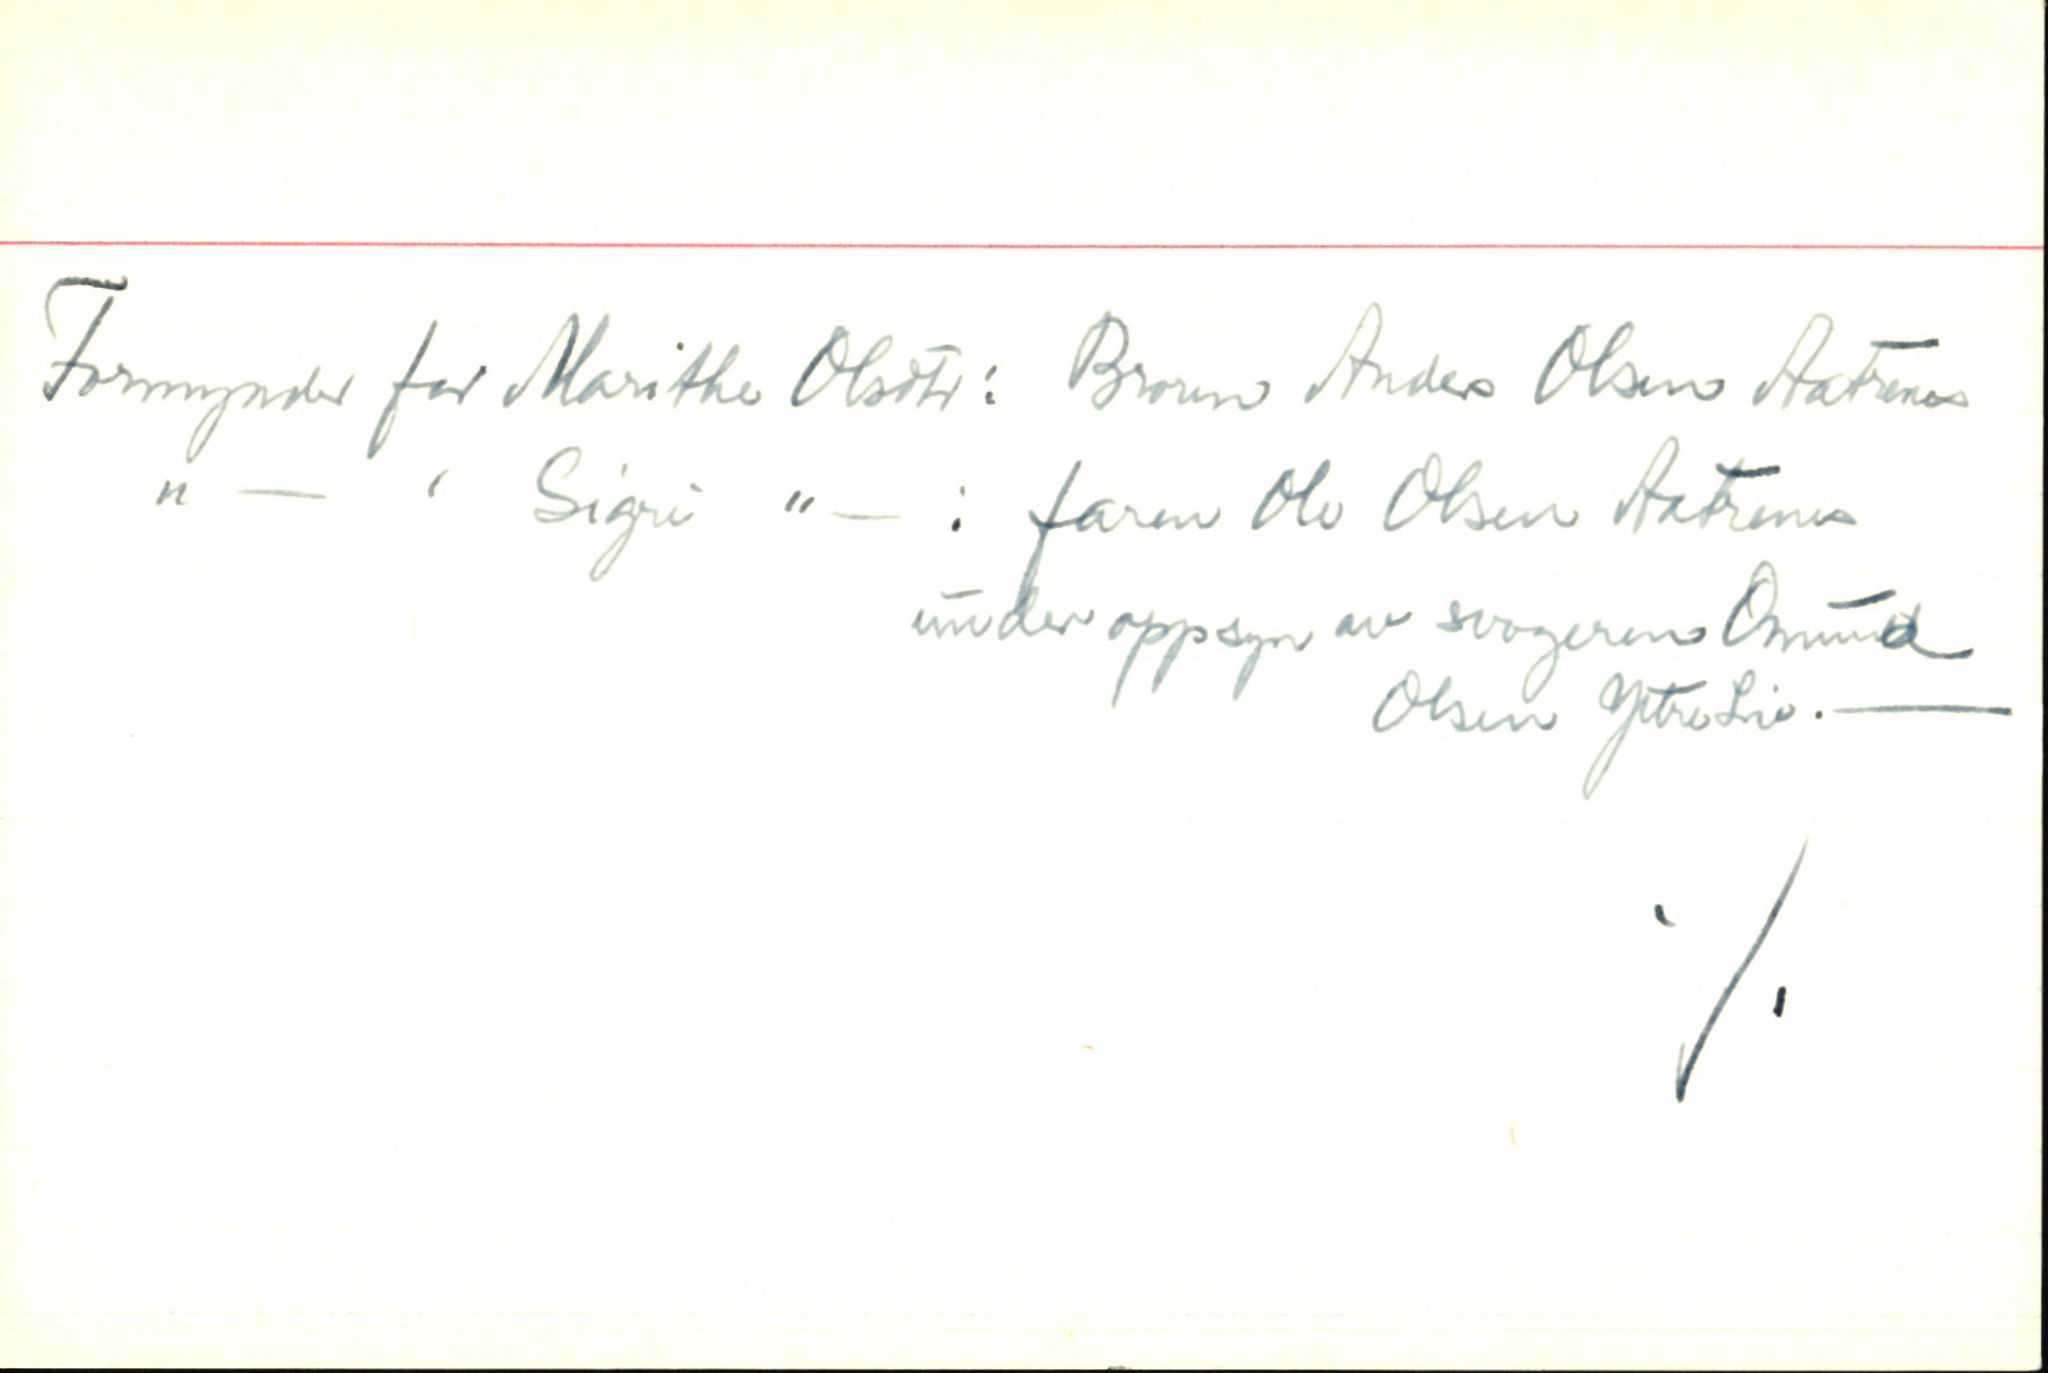 Formynder for Marithe Olsdtr: Broren Anders Olsen Aatrenes
" — ' Sigri " — : faren Ole Olsen Aatrenes
under oppsyn av svogeren Omund
Olsen Ytre Lie. —
./.